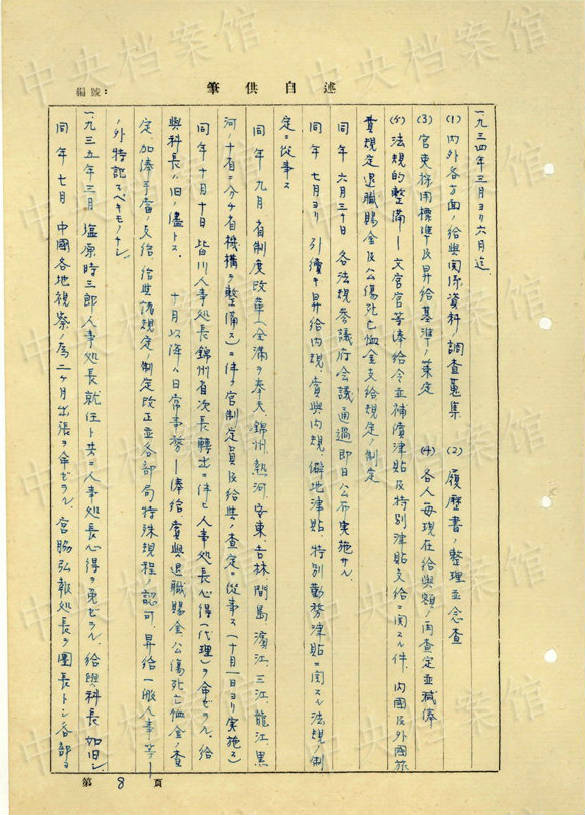 筆供自述
編號：
一九三四年三月ヨリ六月迄
(1) 内外各方面ノ給與関係資料ノ調査蒐集 (2) 履歴書ノ整理並念査
(3) 官吏採用標準及昇給基準ノ策定 (4) 各人毎現在給與額ノ再査定並減俸
(5) 法規的整備―文官官等俸給令並補償津貼及特別津貼支給ニ関スル件、内國及外國旅
費規定退職賜金及公傷死亡恤金支給規定ノ制定
同年六月三十日 各法規参議府会議通過即日公布実施サル
同年七月ヨリ 引續キ昇給内規、賞與内規、僻地津貼、特別勤務津貼ニ関スル法規ノ制
定ニ従事ス
同年九月 省制度改革(全満ヲ奉天、錦州、熱河、安東、吉林、間島、濱江、三江、龍江、黒
河ノ十省ニ分チ省機構ヲ整備ス)ニ伴フ官制定員及給與ノ査定ニ従事ス(十月一日ヨリ実施ス)
同年十月十日 皆川人事処長錦州省次長轉出ニ伴ヒ人事処長心得(代理)ヲ命ゼラル、給
與科長ハ旧ノ儘トス、 十月以降ハ日常事務―俸給賞與退職賜金公傷死亡恤金ノ査
定加俸手當ノ支給、給與諸規定ノ制定改正並各部局特殊規程ノ認可、昇給一般人事等―
ノ外特記スベキモノナシ
一九三五年三月 塩原時三郎人事処長就任ト共ニ人事処長心得ヲ免ゼラル、給與科長如旧シ
同年七月 中國各地視察ノ為二ヶ月出張ヲ命ゼラル、宮脇弘報処長ヲ團長トシ各部ヨ
第 8 頁
中央档案馆